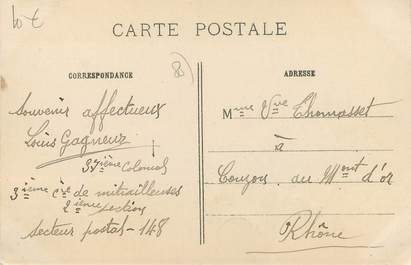 CARTE POSTALE
CORRESPONDANCE
Souvenir affectueux
Louis Gagneux
37ième Colonial
3ième Cie de mitrailleuses
2ième section
Secteur postal - 148
ADRESSE
Mme Vve Thomasset
à
Couzon au Mont d'or
Rhône